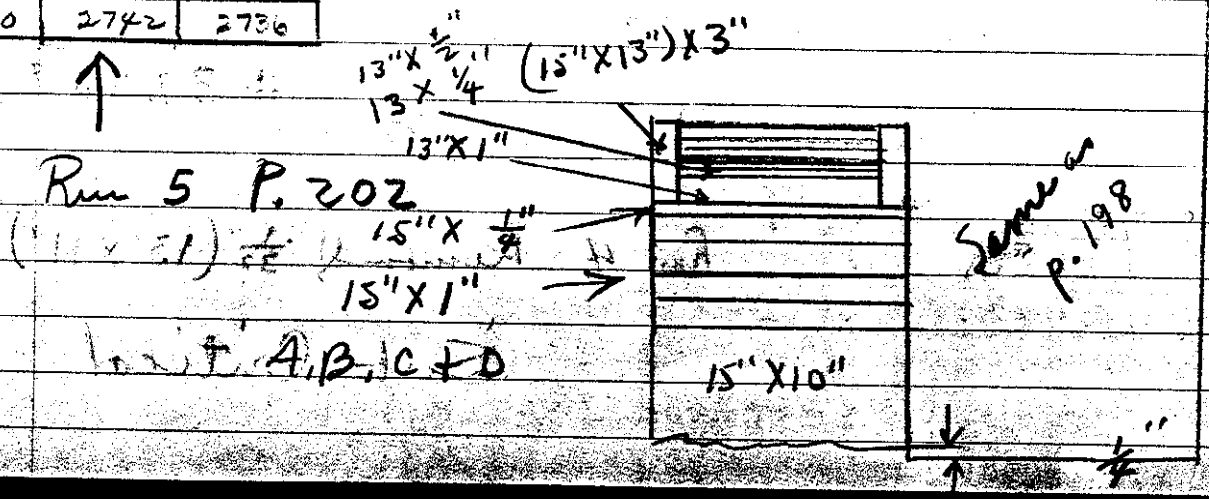 0 2742 2736
13" X 1/2"
(15" X 13") X 3"
13 X 1/4"
13" X 1"
Run 5 P. 202
15" X 1/4"
15" X 1"
A, B, C + D
15" X 10"
Same as
p. 198
1/4"